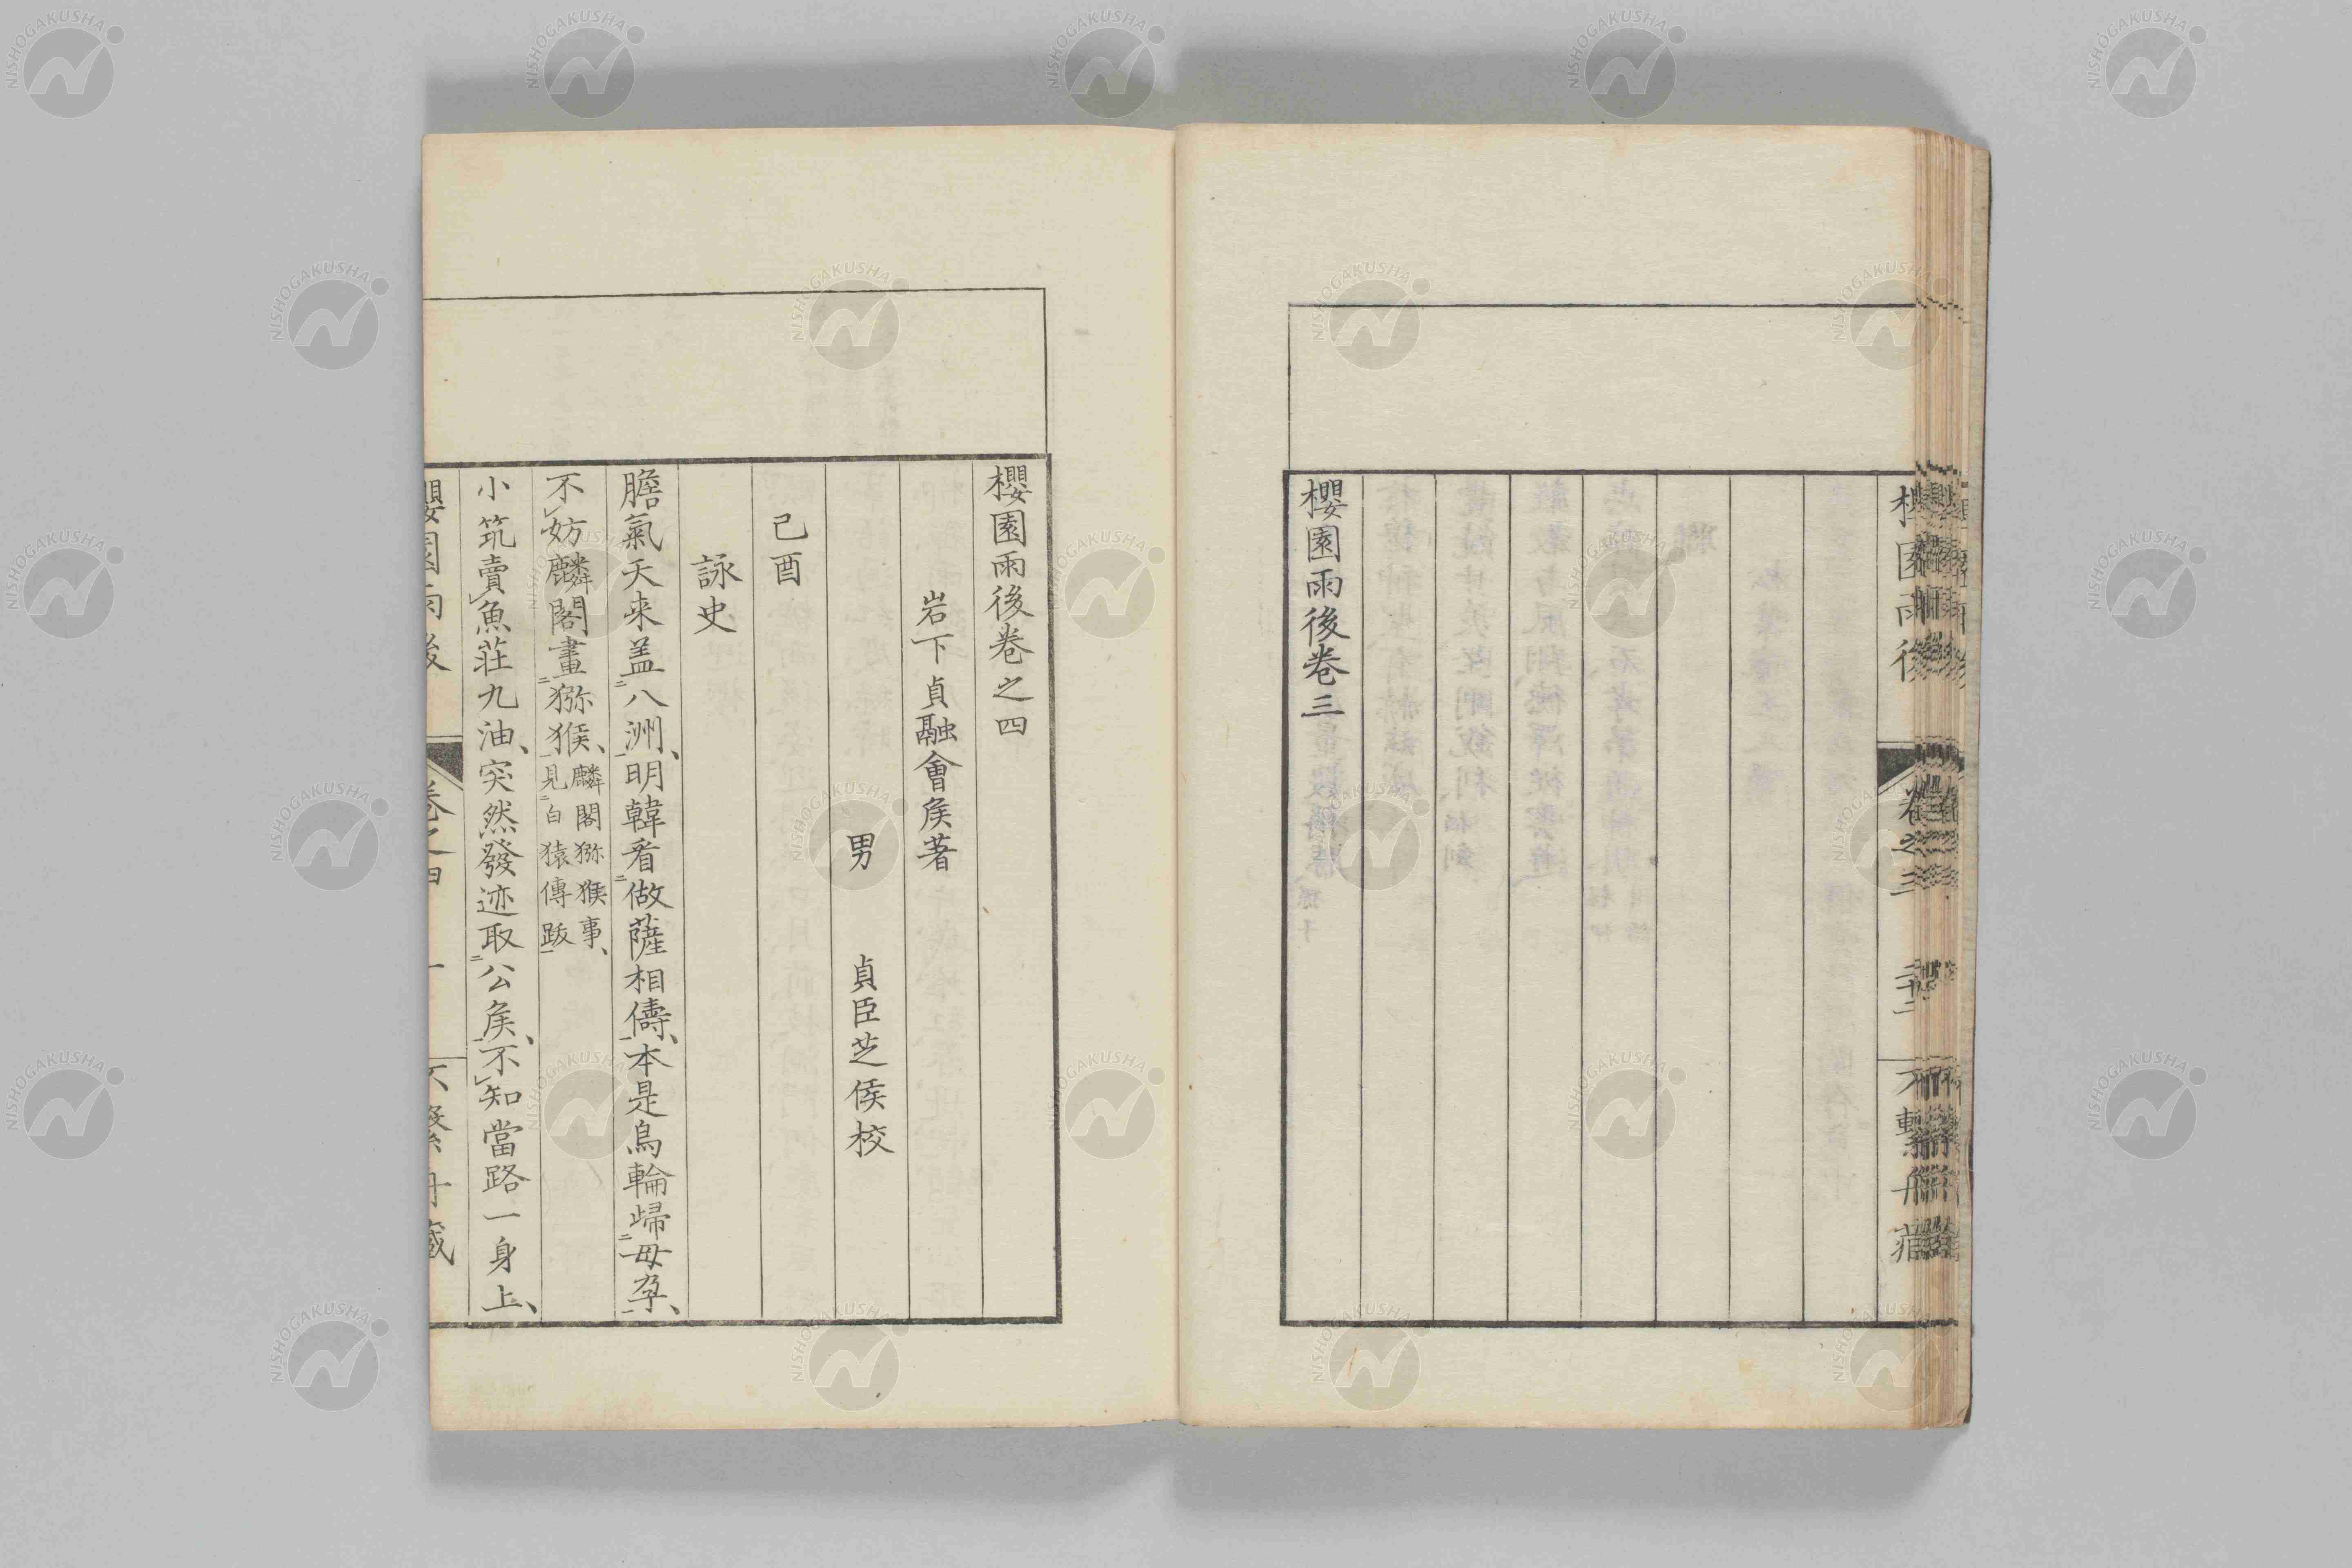 櫻園雨後卷三
櫻園雨後卷之四
岩下貞融會矦著
男 貞臣芝侯校
己酉
詠史
膽氣天来盖八洲、明韓看做薩相儔、本是鳥輪歸母孕、
不妨麟閣畫猕猴、麟閣猕猴事、
見白猿傳跋
小筑賣魚莊九油、突然發迹取公矦、不知當路一身上、
櫻園雨後 卷之四 一
NISHOGAKUSHA